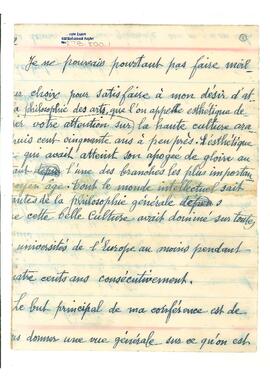 Je ne pouvais pourtant pas faire meil
choix pour satisfaire à mon désir d'at
philosophie des arts, que l'on appelle esthétique de
votre attention sur la haute culture ara
cent cinquante ans à peu près. L'esthétique
qui avait atteint son apogée de gloire au
l'une des branches les plus importan
moyen âge. Tout le monde intellectuel sait
de la philosophie générale
cette belle culture avait dominé sur toutes
universités de l'Europe au moins pendant
cents ans consécutivement.
Le but principal de ma conférence est de
donner une vue générale sur ce qu'on est